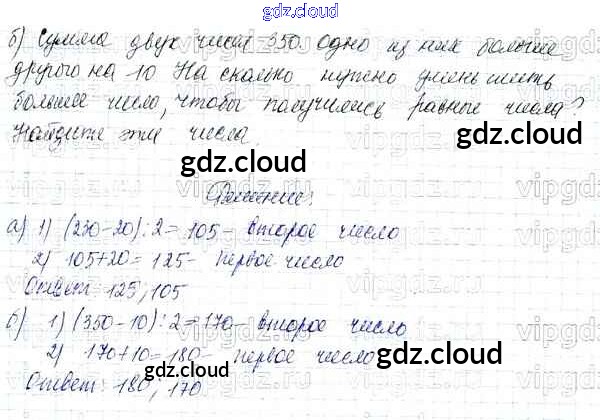 gdz.cloud
б) Сумма двух чисел 350. Одно из них больше
другого на 10. На сколько нужно уменьшить
большее число, чтобы получились равные числа?
Найдите эти числа.
gdz.cloud
gdz.cloud
Решение:
а) 1) (230-20):2=105- второе число
2) 105+20=125- первое число
Ответ: 125; 105
б) 1) (350-10):2=170- второе число
2) 170+10=180- первое число
gdz.cloud
Ответ: 180; 170
gdz.cloud